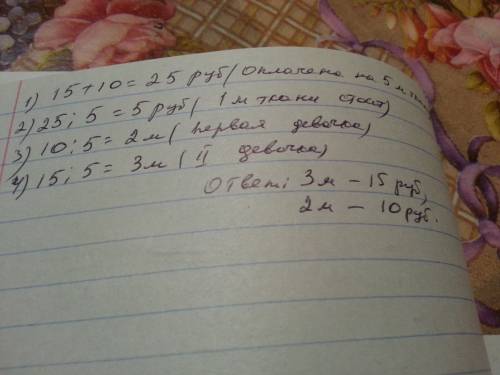 1) 15+10 = 25 руб (оплачено на 5 м
2) 25 : 5 = 5 руб (1 м ткани стоит)
3) 10 : 5 = 2 м (первая девочка)
4) 15 : 5 = 3 м (II девочка)
Ответ: 3 м – 15 руб,
2 м – 10 руб.